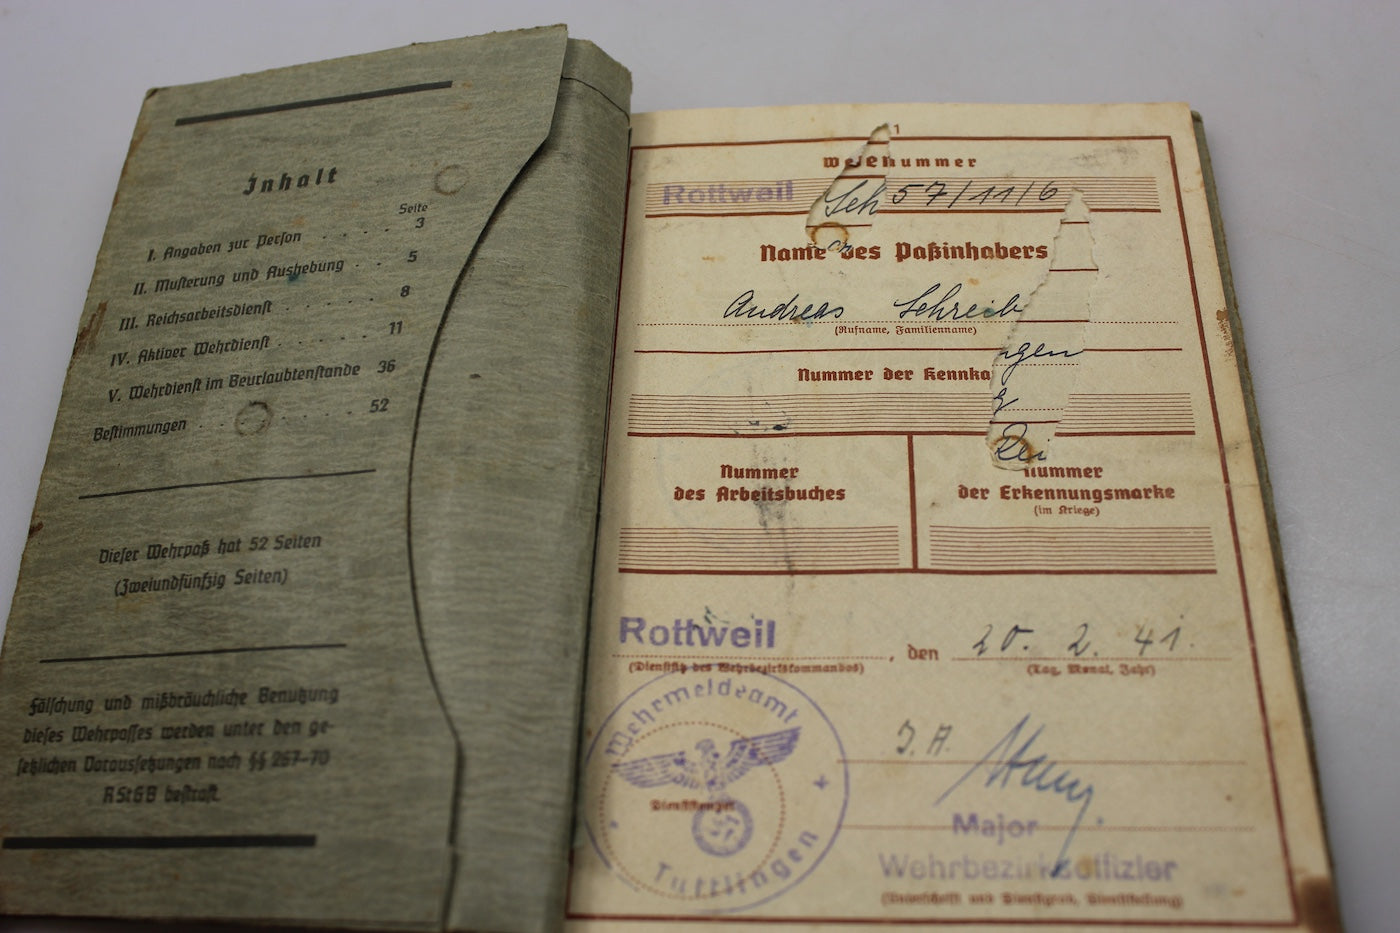 Inhalt
Seite
I. Angaben zur Person . . . . . 3
II. Musterung und Aushebung . . 5
III. Reichsarbeitsdienst . . . . . . 8
IV. Aktiver Wehrdienst . . . . . 11
V. Wehrdienst im Beurlaubtenstande 36
Bestimmungen . . . . . . . 52
Dieser Wehrpaß hat 52 Seiten
(Zweiundfünfzig Seiten)
Fälschung und mißbräuchliche Benutzung
dieses Wehrpasses werden unter den ge-
setzlichen Voraussetzungen nach §§ 267–70
RStGB bestraft.
1
Rottweil 57/11/6
Name des Paßinhabers
Andreas Schreib
(Rufname, Familienname)
ngen
Nummer der Kennka
Nummer
des Arbeitsbuches
Nummer
der Erkennungsmarke
(im Kriege)
Rottweil, den 20. 2. 41.
(Dienstsitz des Wehrbezirkskommandos)
(Tag, Monat, Jahr)
Wehrmeldeamt
Dienststempel
Tuttlingen
J. A.
Major
Wehrbezirksoffizier
(Unterschrift und Dienstgrad, Dienststellung)